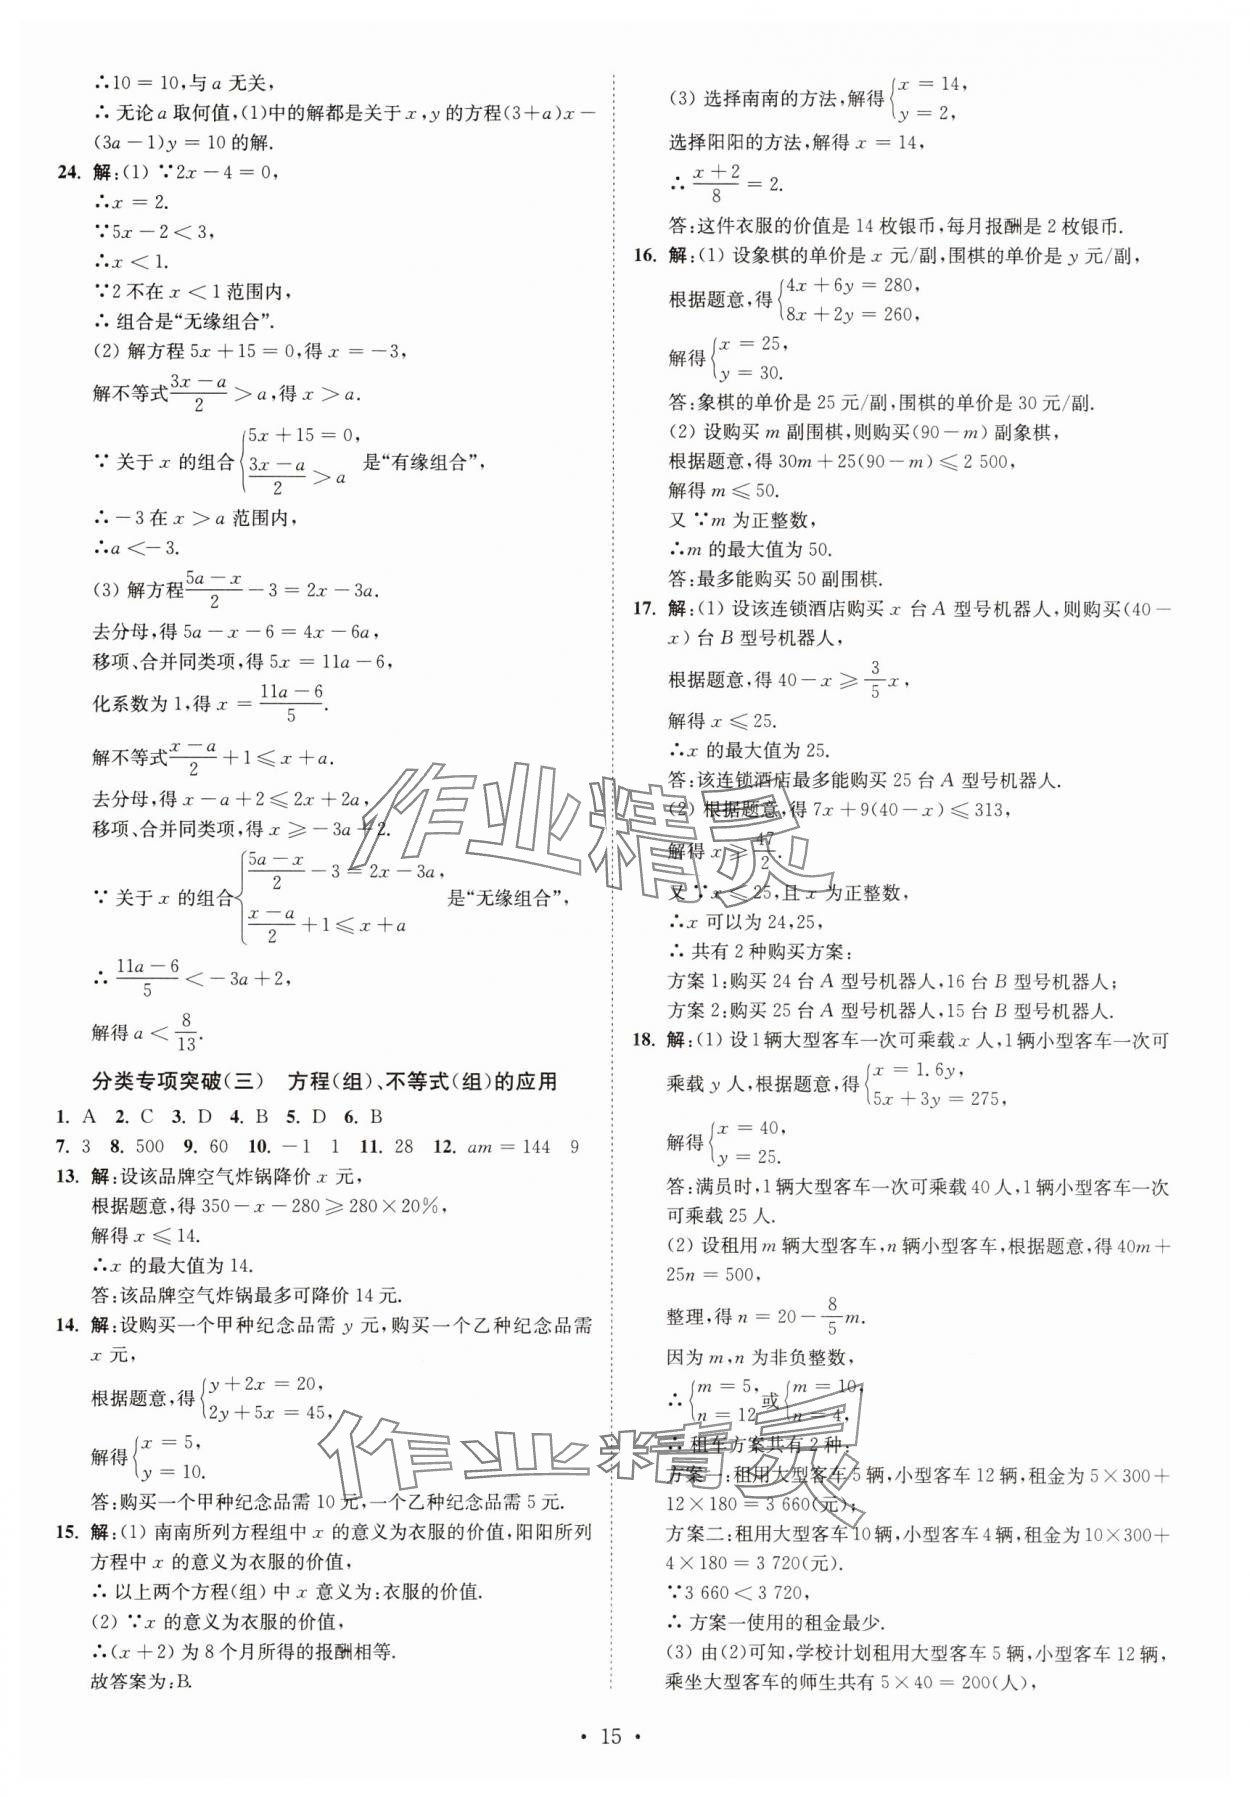 ∴10＝10,与a无关,
∴无论a取何值,(1)中的解都是关于x,y的方程(3＋a)x－
(3a－1)y＝10的解.
24. 解:(1) ∵2x－4＝0,
∴x＝2.
∵5x－2＜3,
∴x＜1.
∵2不在x＜1范围内,
∴组合是“无缘组合”.
(2) 解方程5x＋15＝0,得x＝－3,
解不等式(3x－a)/2＞a,得x＞a.
∵关于x的组合{5x＋15＝0, (3x－a)/2＞a 是“有缘组合”,
∴－3在x＞a范围内,
∴a＜－3.
(3) 解方程(5a－x)/2－3＝2x－3a.
去分母,得5a－x－6＝4x－6a,
移项、合并同类项,得5x＝11a－6,
化系数为1,得x＝(11a－6)/5.
解不等式(x－a)/2＋1≤x＋a.
去分母,得x－a＋2≤2x＋2a,
移项、合并同类项,得x≥－3a＋2.
∵关于x的组合{(5a－x)/2－3＝2x－3a, (x－a)/2＋1≤x＋a 是“无缘组合”,
∴(11a－6)/5＜－3a＋2,
解得a＜8/13.
分类专项突破(三) 方程(组)、不等式(组)的应用
1. A 2. C 3. D 4. B 5. D 6. B
7. 3 8. 500 9. 60 10. －1 1 11. 28 12. am＝144 9
13. 解:设该品牌空气炸锅降价x元,
根据题意,得350－x－280≥280×20%,
解得x≤14.
∴x的最大值为14.
答:该品牌空气炸锅最多可降价14元.
14. 解:设购买一个甲种纪念品需y元,购买一个乙种纪念品需
x元,
根据题意,得{y＋2x＝20, 2y＋5x＝45,
解得{x＝5, y＝10.
答:购买一个甲种纪念品需10元,一个乙种纪念品需5元.
15. 解:(1) 南南所列方程组中x的意义为衣服的价值,阳阳所列
方程中x的意义为衣服的价值,
∴以上两个方程(组)中x意义为:衣服的价值.
(2) ∵x的意义为衣服的价值,
∴(x＋2)为8个月所得的报酬相等.
故答案为:B.
(3) 选择南南的方法,解得{x＝14, y＝2,
选择阳阳的方法,解得x＝14,
∴(x＋2)/8＝2.
答:这件衣服的价值是14枚银币,每月报酬是2枚银币.
16. 解:(1) 设象棋的单价是x元/副,围棋的单价是y元/副,
根据题意,得{4x＋6y＝280, 8x＋2y＝260,
解得{x＝25, y＝30.
答:象棋的单价是25元/副,围棋的单价是30元/副.
(2) 设购买m副围棋,则购买(90－m)副象棋,
根据题意,得30m＋25(90－m)≤2 500,
解得m≤50.
又∵m为正整数,
∴m的最大值为50.
答:最多能购买50副围棋.
17. 解:(1) 设该连锁酒店购买x台A型号机器人,则购买(40－
x)台B型号机器人,
根据题意,得40－x≥3/5x,
解得x≤25.
∴x的最大值为25.
答:该连锁酒店最多能购买25台A型号机器人.
(2) 根据题意,得7x＋9(40－x)≤313,
解得x≥47/2.
又∵x≤25,且x为正整数,
∴x可以为24,25,
∴共有2种购买方案:
方案1:购买24台A型号机器人,16台B型号机器人;
方案2:购买25台A型号机器人,15台B型号机器人.
18. 解:(1) 设1辆大型客车一次可乘载x人,1辆小型客车一次可
乘载y人,根据题意,得{x＝1.6y, 5x＋3y＝275,
解得{x＝40, y＝25.
答:满员时,1辆大型客车一次可乘载40人,1辆小型客车一次
可乘载25人.
(2) 设租用m辆大型客车,n辆小型客车,根据题意,得40m＋
25n＝500,
整理,得n＝20－8/5m.
因为m,n为非负整数,
∴{m＝5, n＝12或{m＝10, n＝4,
∴租车方案共有2种:
方案一:租用大型客车5辆,小型客车12辆,租金为5×300＋
12×180＝3 660(元);
方案二:租用大型客车10辆,小型客车4辆,租金为10×300＋
4×180＝3 720(元).
∵3 660＜3 720,
∴方案一使用的租金最少.
(3) 由(2)可知,学校计划租用大型客车5辆,小型客车12辆,
乘坐大型客车的师生共有5×40＝200(人),
作业精灵
作业精灵
• 15 •